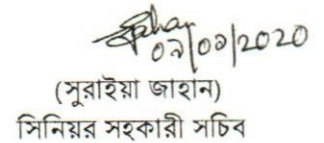 ০১/০১/2020
(সুরাইয়া জাহান)
সিনিয়র সহকারী সচিব